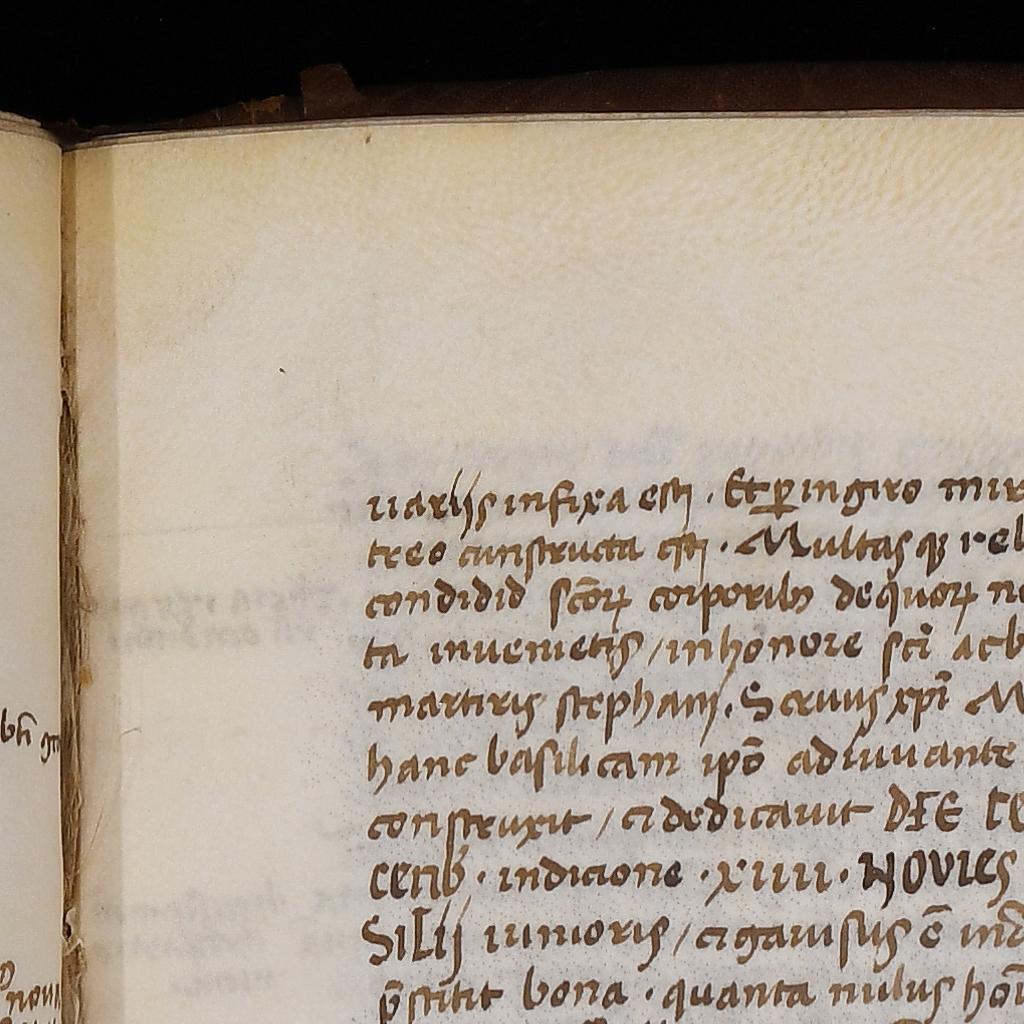 uariis infixa est . Et ꝑ in giro mir
treo cunstructa est . Multasqꝫ rel
condidid scōrꝝ corporibꝫ de quorꝝ no
ta inuenietis / in honore sci ac b
martiris stephani . Seruus xpi M
hanc basilicam ipō adiuuante
construxit / et dedicauit DIE
indicione . xiiii . NOVIES
SILII iunioris / et gauisus ē ind
p̄stitit bona . quanta nulus hoī